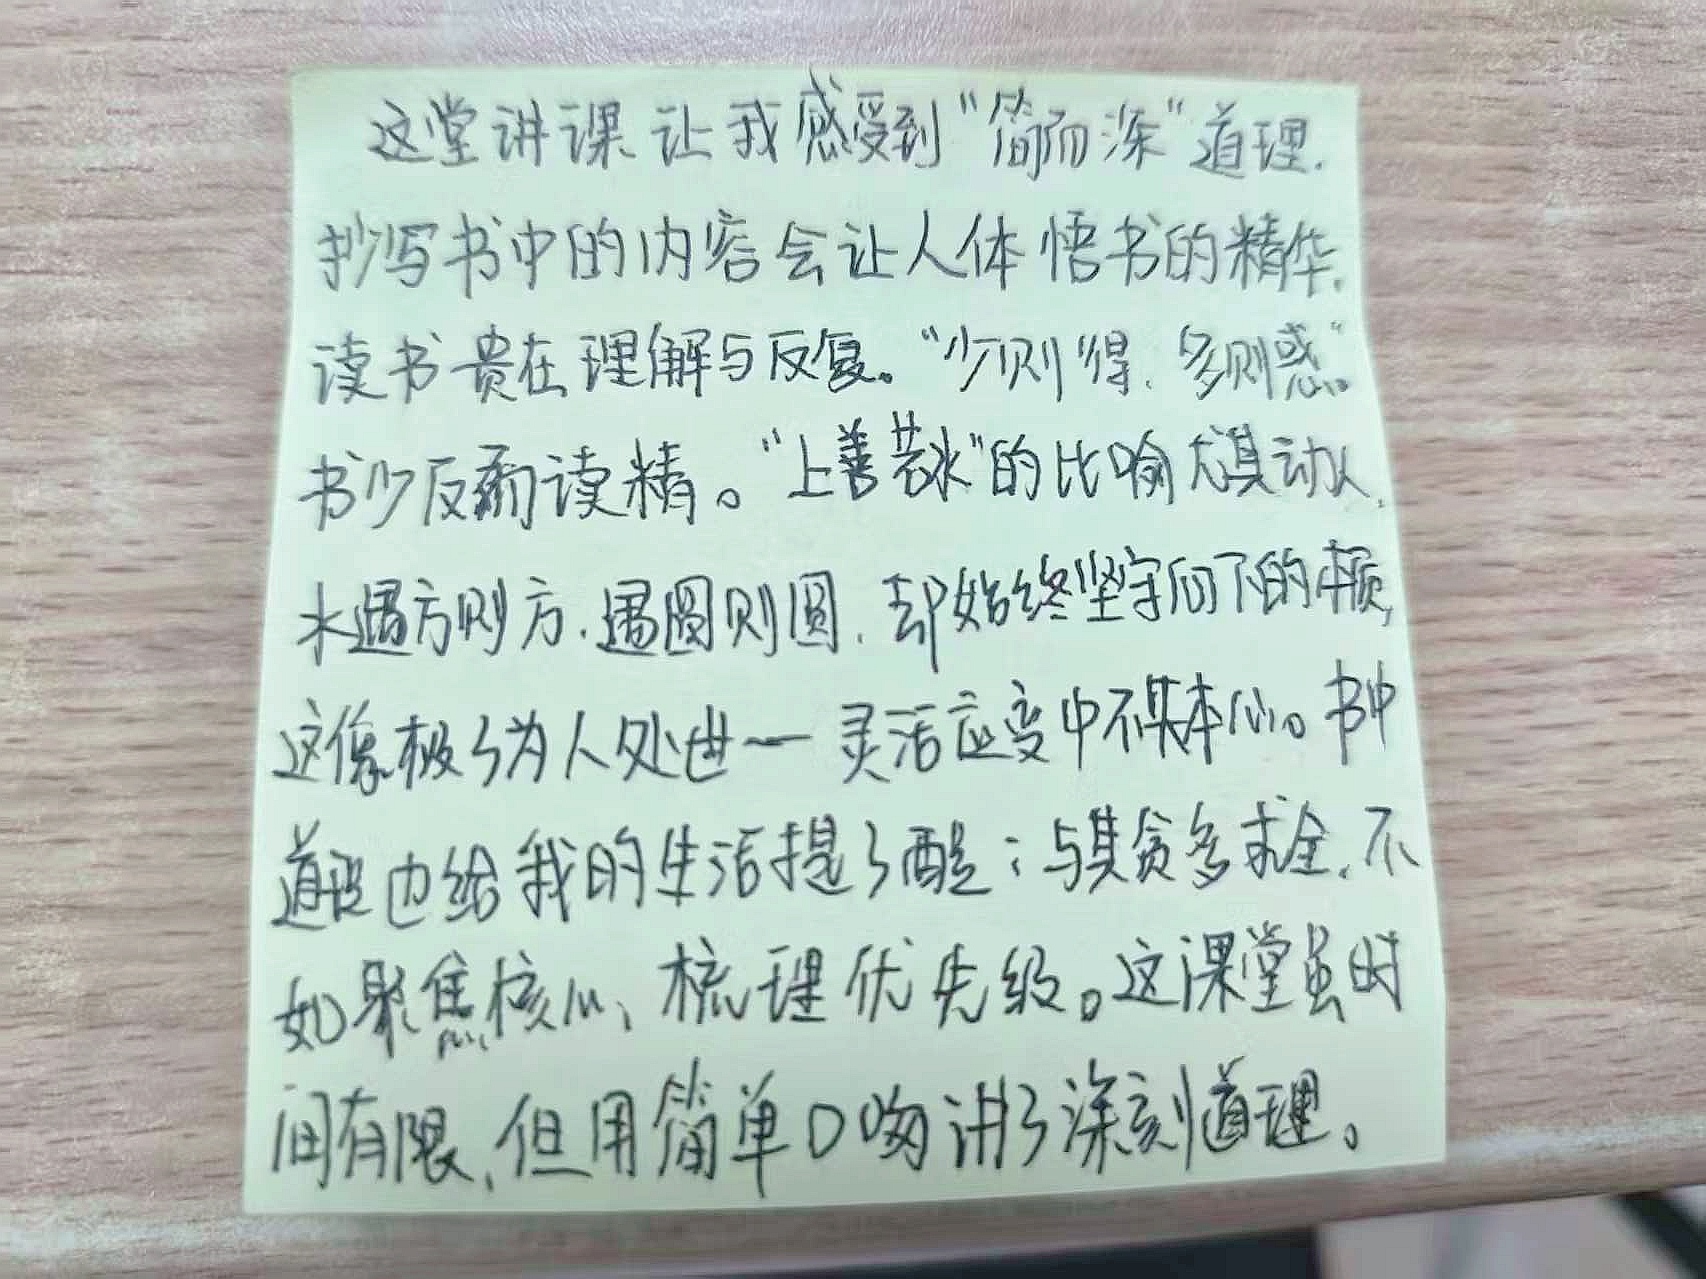 这堂讲课让我感受到“简而深”道理.
抄写书中的内容会让人体悟书的精华,
读书贵在理解与反复。“少则得,多则惑”
书少反而读精。“上善若水”的比喻尤其动人,
水遇方则方,遇圆则圆,却始终坚守向下的本质,
这像极了为人处世一灵活应变中不失本心。书中
道理也给我的生活提了醒:与其贪多求全,不
如聚焦核心、梳理优先级。这课堂虽时
间有限,但用简单口吻讲了深刻道理。